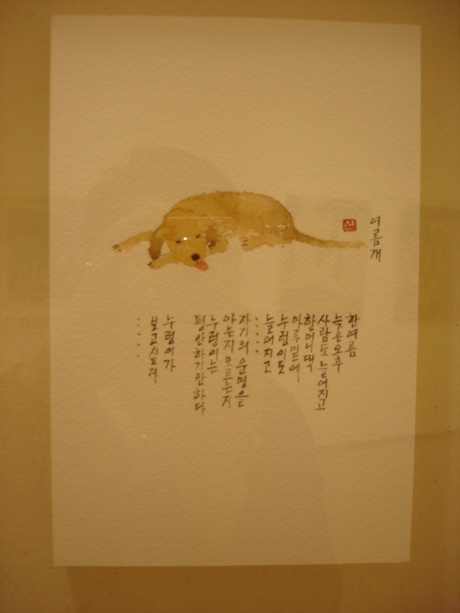 여름개
신
한여름
늦은오후
사람도 늘어지고
할머니댁
마루밑에
누렁이도
늘어지고
.....
자기의 운명을
아는지모르는지
누렁이는
평안하기만하다
누렁이가
보고싶다
.....